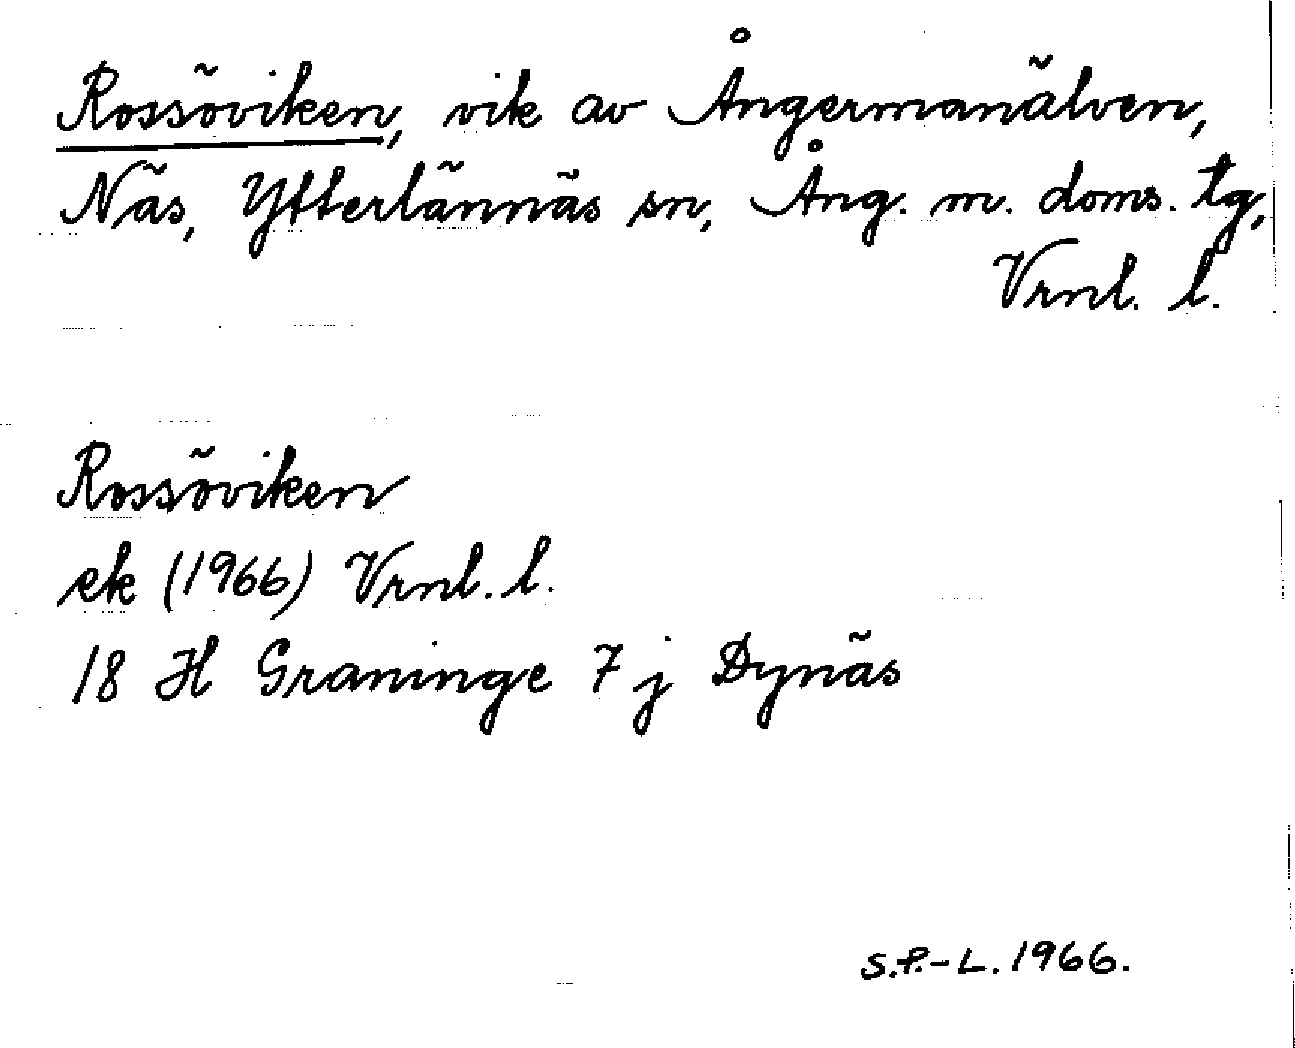 Rossöviken, vik av Ångermanälven,
Näs, Ytterlännäs sn, Ång. m. doms. tg,
Vrnl. l.
Rossöviken
ek (1966) Vrnl. l.
18 H Graninge 7 j Dynäs
S.P.-L. 1966.